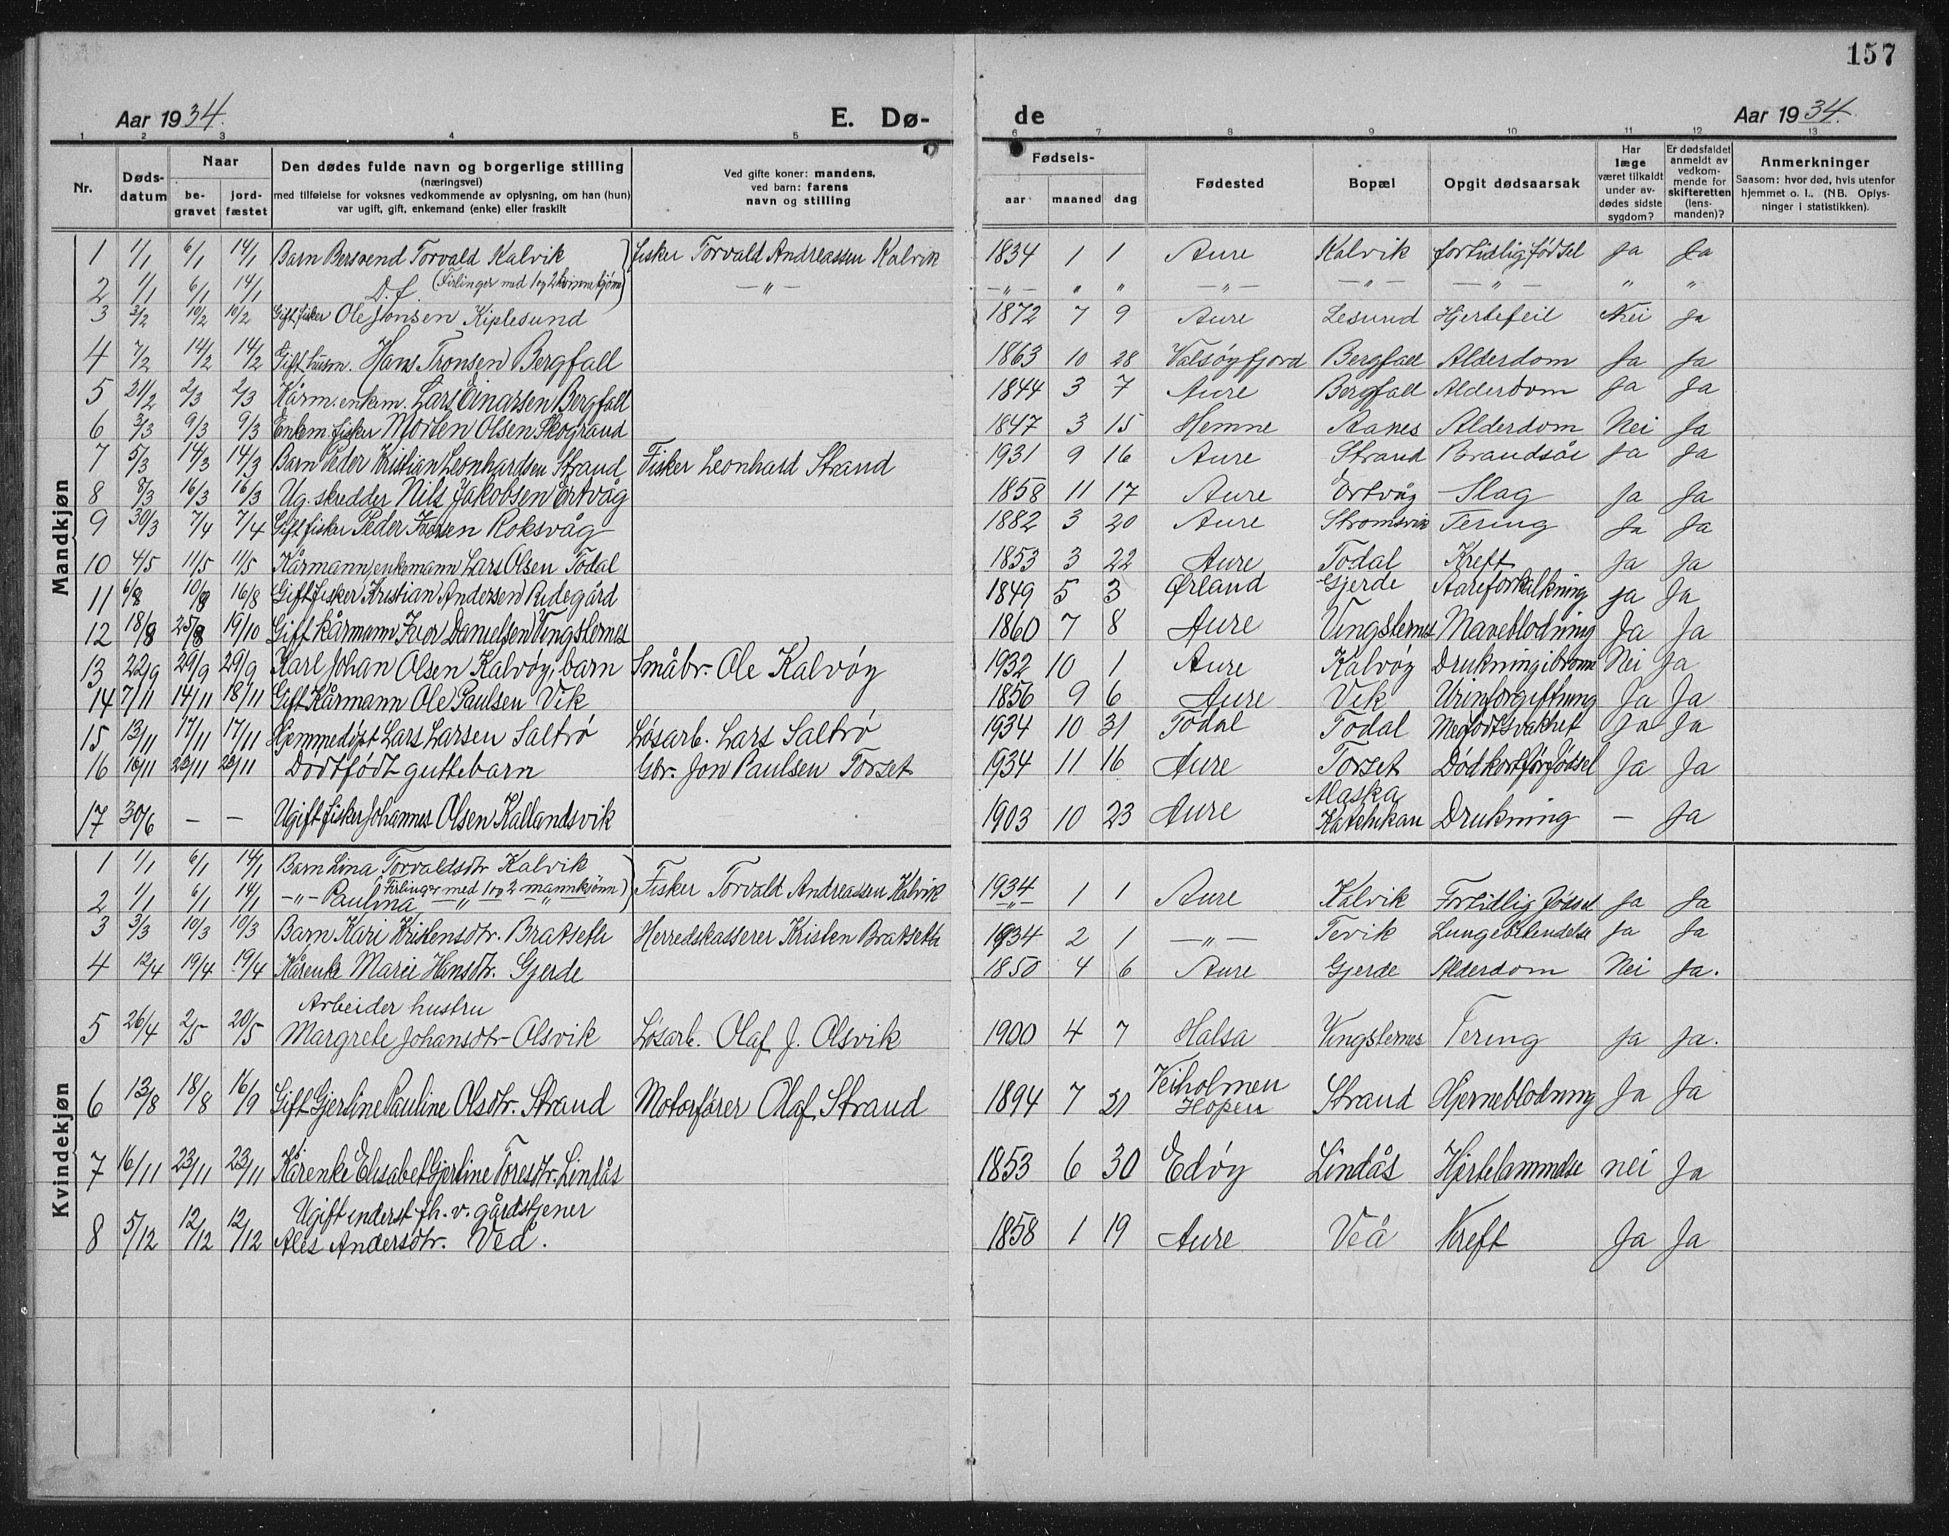 157
Aar 1934.
E. Dø-
de
Aar 1934.
1 2 3 4 5 6 7 8 9 10 11 12 13
Nr. Døds-datum Naar be-gravet jord-fæstet
Den dødes fulde navn og borgerlige stilling
(næringsvei)
med tilføielse for voksnes vedkommende av oplysning, om han (hun)
var ugift, gift, enkemand (enke) eller fraskilt
Ved gifte koner: mandens,
ved barn: farens
navn og stilling
Fødsels- aar maaned dag
Fødested
Bopæl
Opgit dødsaarsak
Har læge været tilkaldt under av-dødes sidste sygdom?
Er dødsfaldet anmeldt av vedkom-mende for skifteretten (lens-manden)?
Anmerkninger
Saasom: hvor død, hvis utenfor
hjemmet o. l.. (NB. Oplys-
ninger i statistikken).
Mandkjøn
1 1/1 6/1 14/1 Barn Bersvend Torvald Kalvik fisker Torvald Andreassen Kalvik 1834 1 1 Aure Kalvik fortidlig fødsel Ja Ja
2 1/1 6/1 14/1 D.f. (Firlinger med 1 og 2 kvinnekjønn) —"— —"— " " —"— —"— —"— " "
3 3/2 10/2 10/2 Gift fisker Ole Jonsen Kiplesund 1872 7 9 Aure Lesund Hjertefeil Nei Ja
4 7/2 14/2 14/2 Gift husm. Hans Tronsen Bergfall 1863 10 28 Valsøyfjord Bergfall Alderdom Ja Ja
5 21/2 2/3 2/3 Kårm. enkem. Lars Einarsen Bergfall 1844 3 7 Aure Bergfall Alderdom Ja Ja
6 3/3 9/3 9/3 Enkem. fisker Morten Olsen Skogrand 1847 3 15 Hemne Aanes Alderdom Nei Ja
7 5/3 14/3 14/3 Barn Peder Kristian Leonhardsen Strand Fisker Leonhard Strand 1931 9 16 Aure Strand Brandsår Ja Ja
8 8/3 16/3 16/3 Ug. skredder Nils Jakobsen Ertvåg 1858 11 17 Aure Ertvåg Slag Ja Ja
9 30/3 7/4 7/4 Gift fisker Peder Iversen Roksvåg 1882 3 20 Aure Strømsvik Tering Ja Ja
10 4/5 11/5 11/5 Kårmann, enkemann Lars Olsen Todal 1853 3 22 Aure Todal Kreft Ja Ja
11 6/8 10/8 16/8 Gift fisker Kristian Andersen Rudegård 1849 5 3 Ørland Gjerde Aareforkalkning Ja Ja
12 18/8 25/8 19/10 Gift kårmann Iver Danielsen Vingsternes 1860 7 8 Aure Vingsternes Maveblødning Ja Ja
13 22/9 29/9 29/9 Karl Johan Olsen Kalvøy, barn Småbr. Ole Kalvøy 1932 10 1 Aure Kalvøy Drukning i brønn Nei Ja
14 7/11 14/11 18/11 Gift Kårmann Ole Paulsen Vik 1856 9 6 Aure Vik Urinforgiftning Ja Ja
15 13/11 17/11 17/11 Hjemmedøpt Lars Larsen Saltrø Løsarb. Lars Saltrø 1934 10 31 Todal Todal Medfødt svakhet Ja Ja
16 16/11 23/11 23/11 Dødfødt guttebarn Gbr. Jon Paulsen Torset 1934 11 16 Aure Torset Død kort før fødsel Ja Ja
17 30/6 — — Ugift fisker Johannes Olsen Kallandsvik 1903 10 23 Aure Alaska Katchikan Drukning — Ja
Kvindekjøn
1 1/1 6/1 14/1 Barn Lina Torvaldsdtr Kalvik
2 1/1 6/1 14/1 —"— Paulina —"— —"— (Firlinger med 1 og 2 mannkjønn) Fisker Torvald Andreassen Kalvik 1934 —"— 1 1 Aure Kalvik Fortidlig fødsel Ja Ja
3 3/3 10/3 10/3 Barn Kari Kristensdtr. Bratseth Herredskasserer Kristen Bratseth 1934 2 1 —"— Tevik Lungebetendelse Ja Ja
4 12/4 19/4 19/4 Kårenke Marie Hansdtr. Gjerde 1850 4 6 Aure Gjerde Alderdom Nei Ja.
Arbeider hustru
5 26/4 2/5 20/5 Margrete Johansdtr Olsvik Løsarb. Olaf J. Olsvik 1900 4 7 Halsa Vingsternes Tering Ja Ja.
6 13/8 18/8 16/9 Gift Gjertine Pauline Olsdtr. Strand Motorfører Olaf Strand 1894 7 21 Veiholmen Hopen Strand Hjerneblødning Ja Ja
7 16/11 23/11 23/11 Kårenke Elisabet Gjertine Toresdtr. Lindås 1853 6 30 Edøy Lindås Hjertelammelse nei Ja
Ugift inderst fh. v. gårdstjener
8 5/12 12/12 12/12 Ales Andersdtr. Veå. 1858 1 19 Aure Veå Kreft Ja Ja